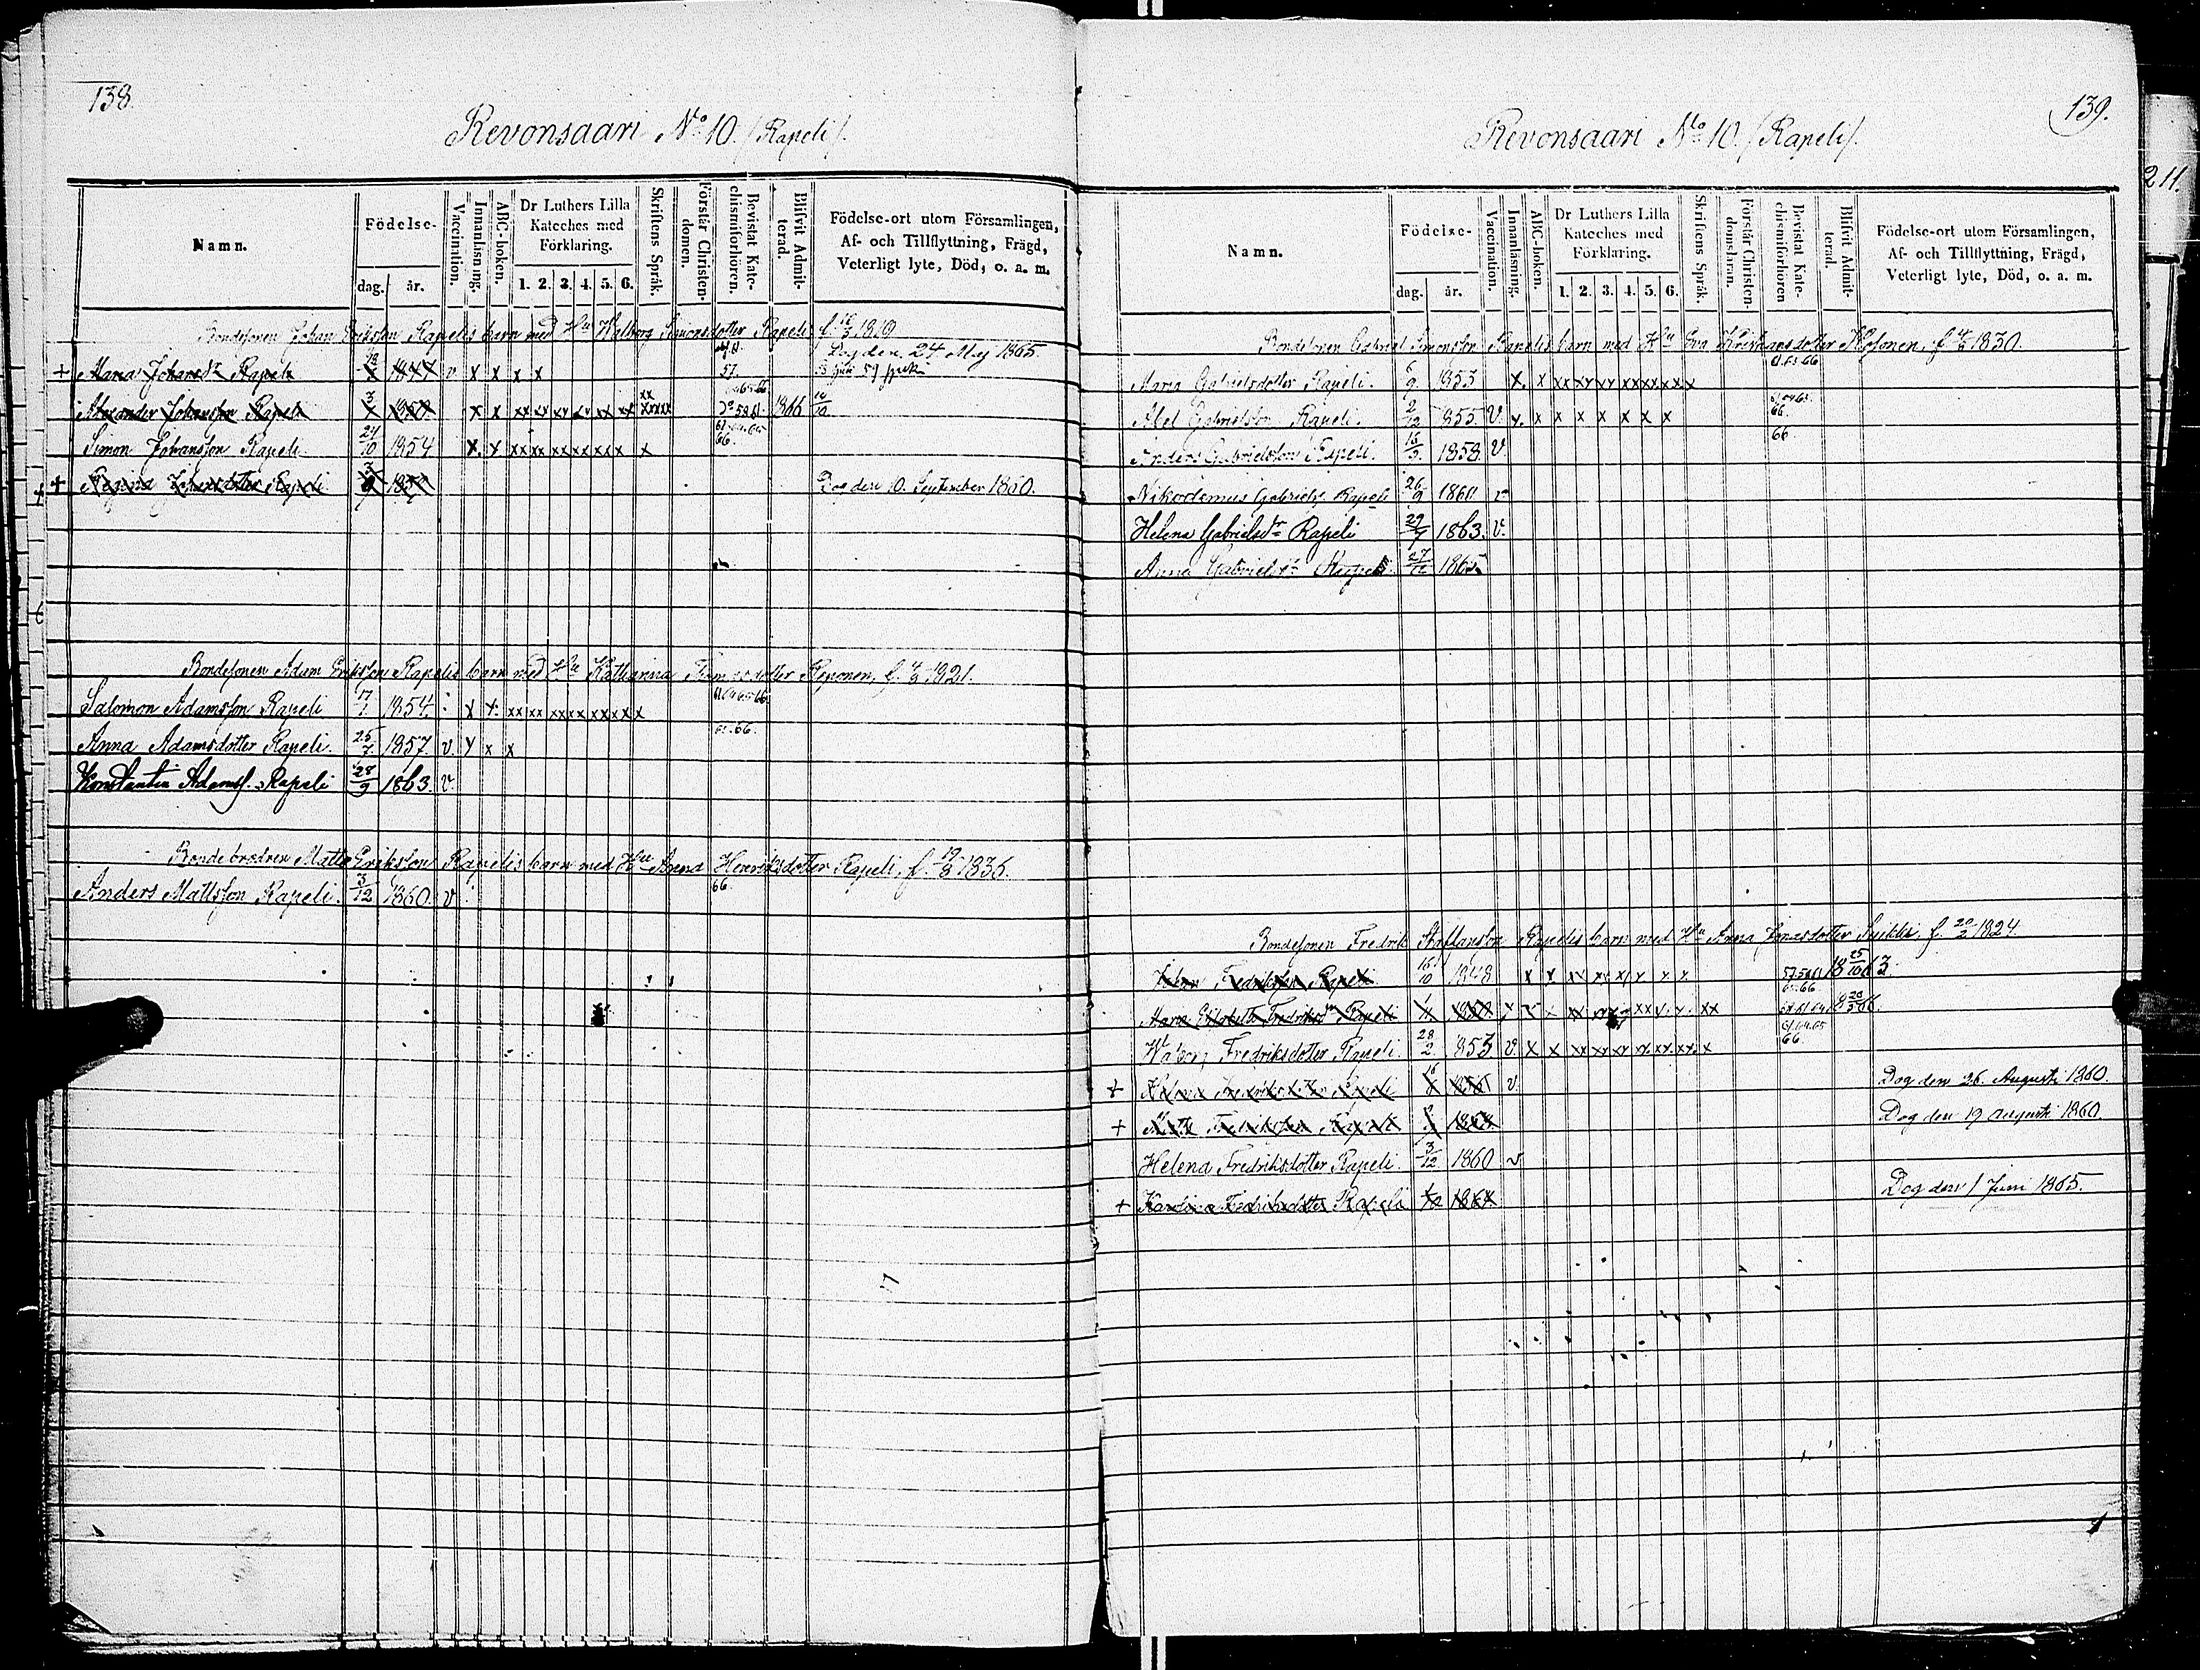 138
Revonsaari No 10. (Rapeli).
Namn.
Födelse-
dag. år.
Vaccination.
Innanläsning.
ABC-boken.
Dr Luthers Lilla
Kateches med
Förklaring.
1. 2. 3. 4. 5. 6.
Skriftens Språk.
Förstår Christen-
domen.
Bevistat Kate-
chismiförhören.
Blifvit Admit-
terad.
Födelse-ort utom Församlingen,
Af- och Tillflyttning, Frägd,
Veterligt lyte, Död, o. a. m.
Bondesonen Johan Eriksson Rapelis barn med Hu Walborg Simonsdotter Rapeli f.
+ Maria Johansdr Rapeli v x x x x 57. Dog den 24 Maj 1865.
Alexander Johansson Rapeli 1850 x x xx xx xx xx xx xx 1866
Simon Johansson Rapeli 24/10 1854 x. x xx xx xx xx xx x x 66.
+ Regina Johansdotter Rapeli Dog den 10. September 1860.
Bondesonen Adam Eriksson Rapelis barn med Hu Katharina Reponen, f. 1821.
Salomon Adamsson Rapeli 17/7 1854. x x. xx xx xx xx xx x x x
Anna Adamsdotter Rapeli. 25/7 1857. v. x x x 66.
Konstantin Adamss. Rapeli 28/9 1863 v.
Bondebrodren Matts Eriksson Rapelis barn med Hu Anna Henriksdotter Rapeli, f. 19/8 1836.
Anders Mattsson Rapeli. 3/12 1860. v 66.
139.
Revonsaari No 10. (Rapeli).
Namn.
Födelse-
dag. år.
Vaccination.
Innanläsning.
ABC-boken.
Dr Luthers Lilla
Kateches med
Förklaring.
1. 2. 3. 4. 5. 6.
Skriftens Språk.
Förstår Christen-
domsläran.
Bevistat Kate-
chismiförhören
Blifvit Admit-
terad.
Födelse-ort utom Församlingen,
Af- och Tillflyttning, Frägd,
Veterligt lyte, Död, o. a. m.
Bondesonen Gabriel Simonsson Rapelis barn med Hu Eva Kristiansdotter f. 1830.
Maria Gabrielsdotter Rapeli. 1853 x. x xx xx xx xx xx xx x
Abel Gabrielsson Rapeli. 2/12 1855 V. x. x x x x x x x 66.
Anders Gabrielsson Rapeli. 1858. V 66.
Nikodemus Gabrielss. Rapeli 26/9 1860. v
Helena Gabrielsdr Rapeli 29/7 1863. v.
Anna Gabrielsdr Rapeli. 27/12 1865
Bondesonen Fredrik Staffansson Rapelis barn med Hu Anna Jonasdotter Suikki, f. 20/2 1824
Johan Fredriksson Rapeli 16/10 1848 x x. xx xx xx x x x. 18 25/10 63.
Maria Elisabeth Fredriksdr Rapeli 18 20/5 66.
Walborg Fredriksdotter Rapeli. 28/2 1853 v. x x xx xx xx xx xx xx x 66.
+ Helena Fredriksdotter Rapeli. 1856 v. Dog den 26. Augusti 1860.
+ Matts Fredriksson Rapeli Dog den 19 augusti 1860.
Helena Fredriksdotter Rapeli. 3/12 1860 v
+ Karolina Fredriksdotter Rapeli 1864 Dog den 1 Juni 1865.
211.